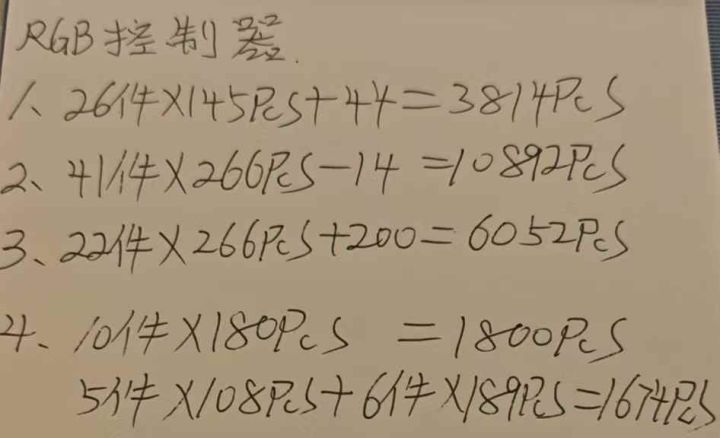 RGB控制器.
1、26件×145Pcs+44=3814Pcs
2、41件×266Pcs-14=10892Pcs
3、22件×266Pcs+200=6052Pcs
4、10件×180Pcs =1800Pcs
5件×108Pcs+6件×189Pcs=1674Pcs